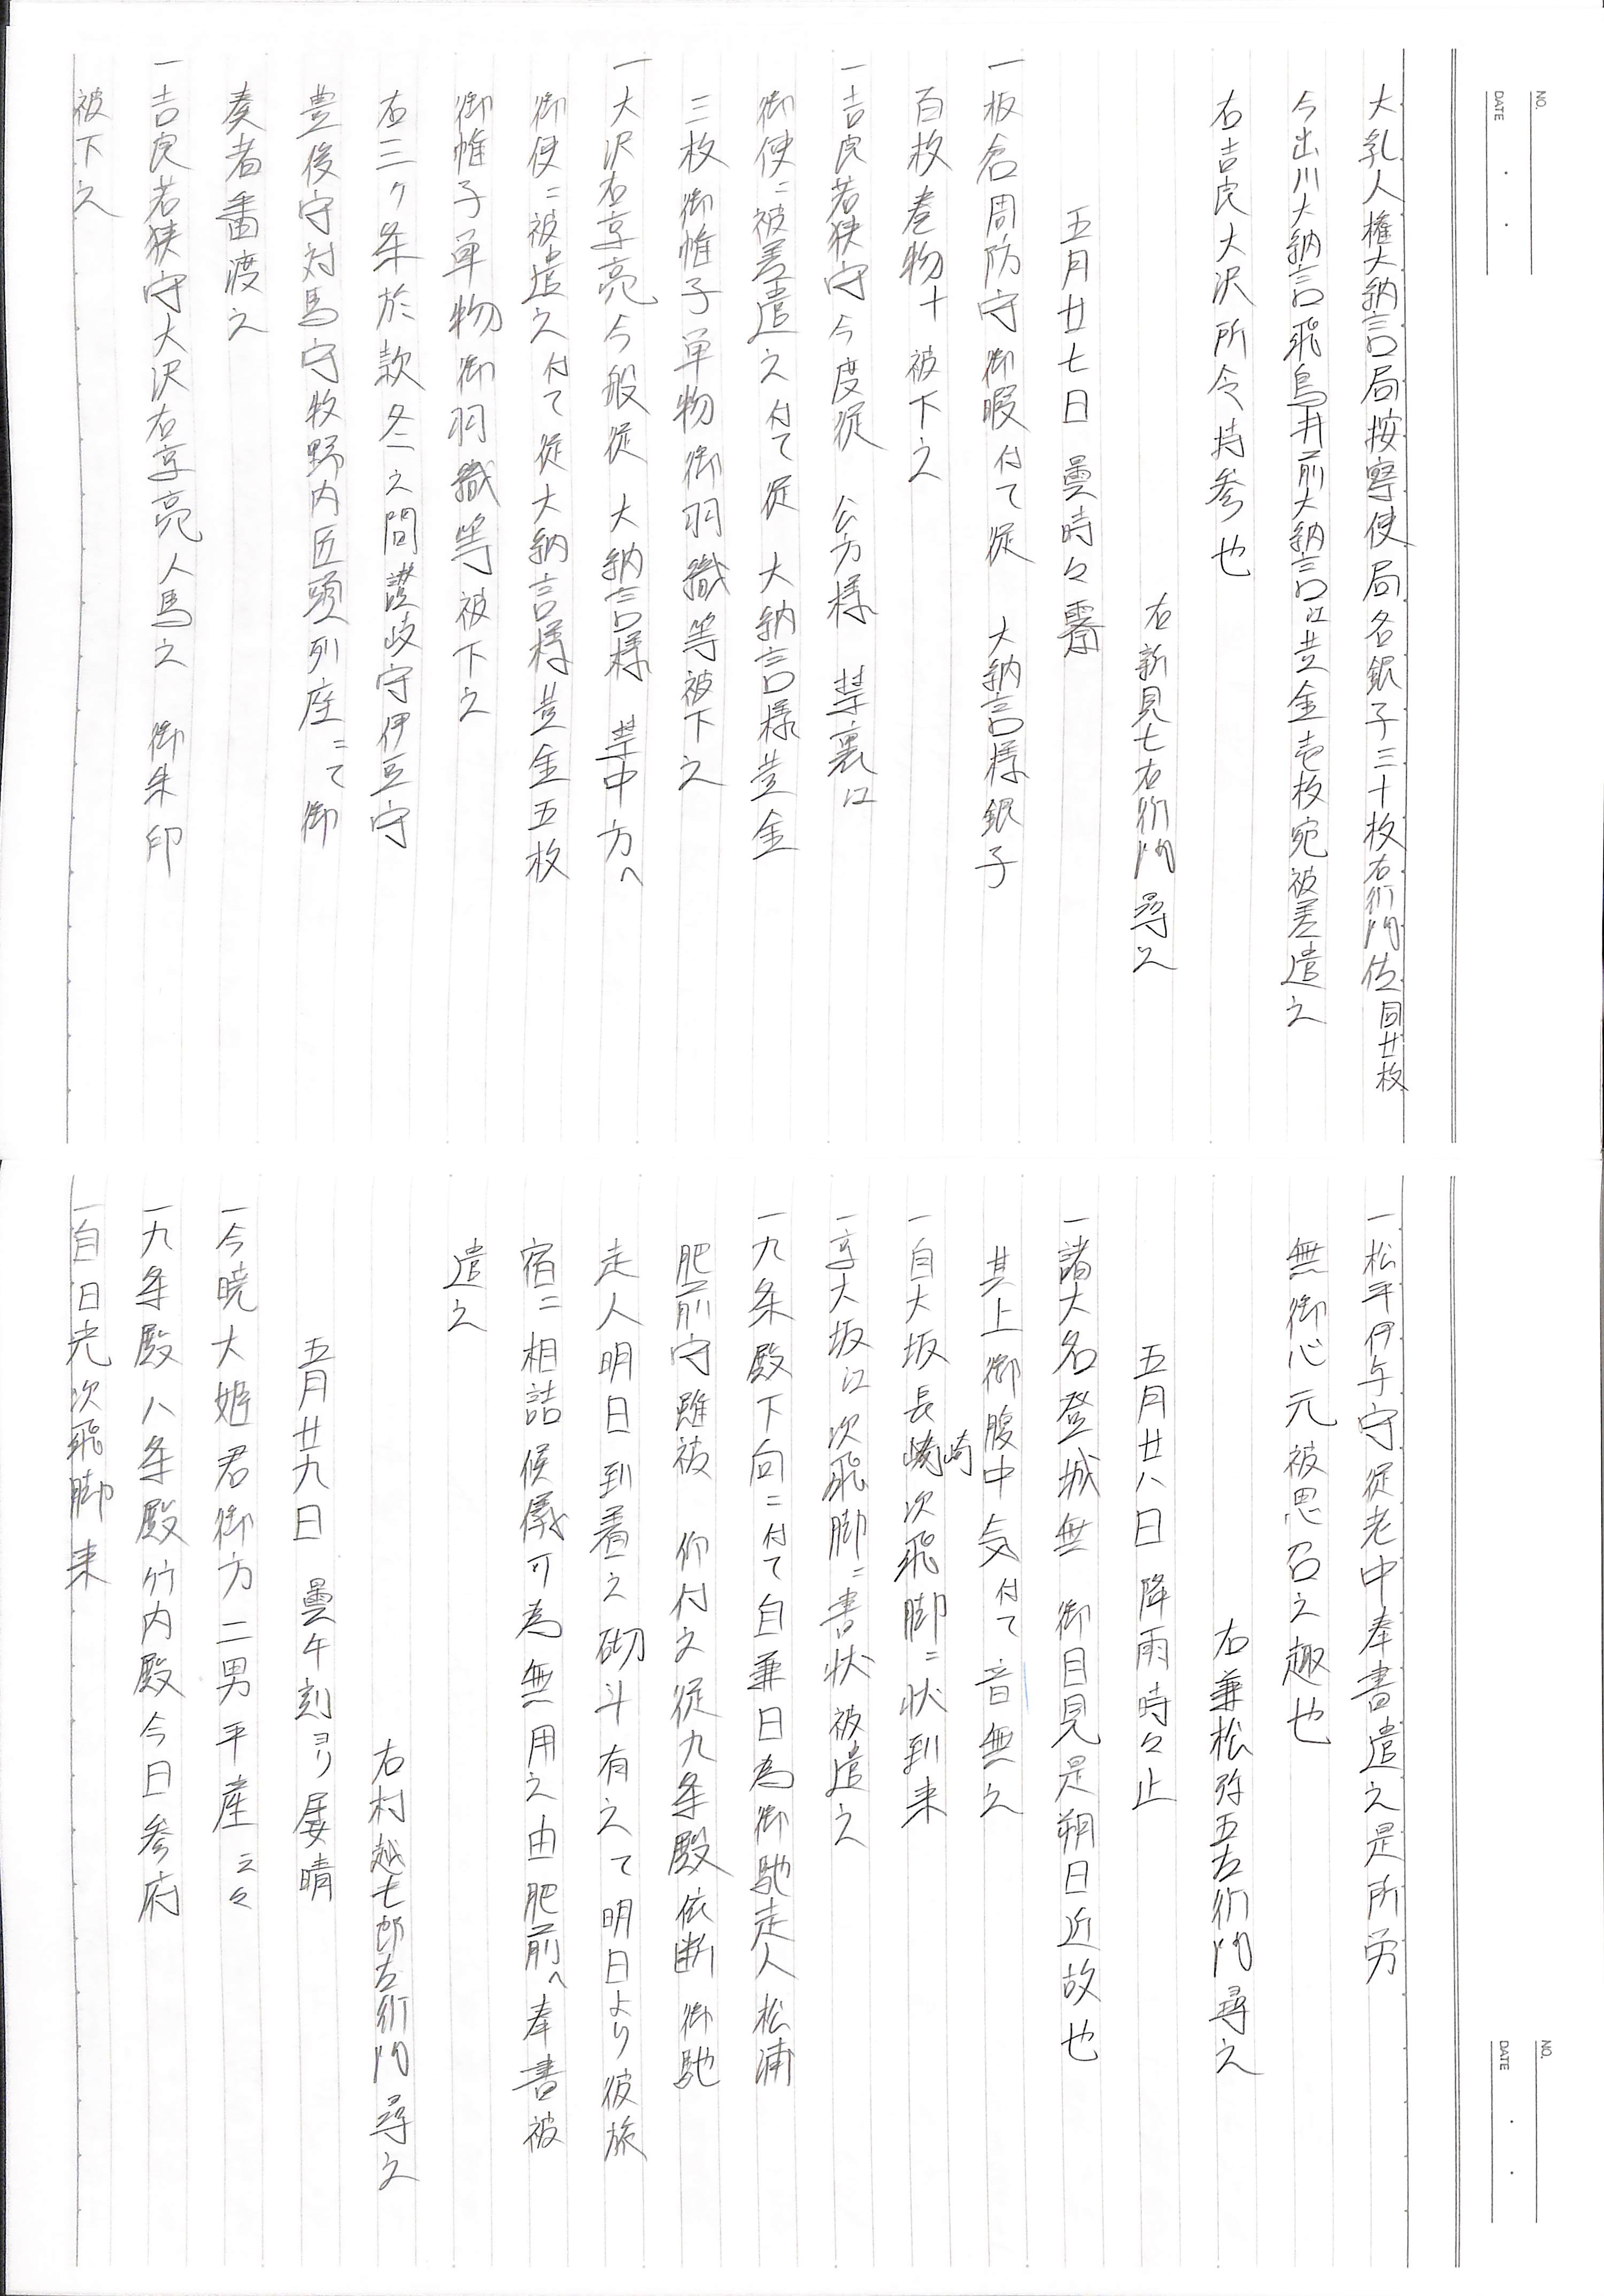 NO.
DATE
大乳人権大納言局按察使局各銀子三十枚右衛門佐同廿枚
今出川大納言飛鳥井前大納言江黄金壱枚宛被差遣之
右吉良大沢所令持参也
右新見七右衛門尋之
五月廿七日 曇時々霽
一板倉周防守御暇付て従 大納言様銀子
百枚巻物十被下之
一吉良若狭守今度従 公方様 禁裏江
御使ニ被差遣之付て従 大納言様黄金
三枚御帷子単物御羽織等被下之
一大沢右京亮今般従 大納言様 禁中方へ
御使ニ被遣之付て従大納言様黄金五枚
御帷子単物御羽織等被下之
右三ケ条於款冬之間讃岐守伊豆守
豊後守対馬守牧野内匠頭列座ニて御
奏者番渡之
一吉良若狭守大沢右京亮人馬之 御朱印
被下之
NO.
DATE
一松平伊与守従老中奉書遣之是所労
無御心元被思召之趣也
右兼松弥五左衛門尋之
五月廿八日 降雨時々止
一諸大名登城無 御目見是朔日近故也
其上御腹中気付て音無之
一自大坂長崎次飛脚ニ状到来
崎
一京大坂江次飛脚ニ書状被遣之
一九条殿下向ニ付て自兼日為御馳走人松浦
肥前守雖被 仰付之従九条殿依断御馳
走人明日到着之砌斗有之て明日より彼旅
宿ニ相詰候儀可為無用之由肥前へ奉書被
遣之
右村越七郎左衛門尋之
五月廿九日 曇午刻ヨリ屡晴
一今暁大姫君御方二男平産云々
一九条殿八条殿竹内殿今日参府
一自日光次飛脚来